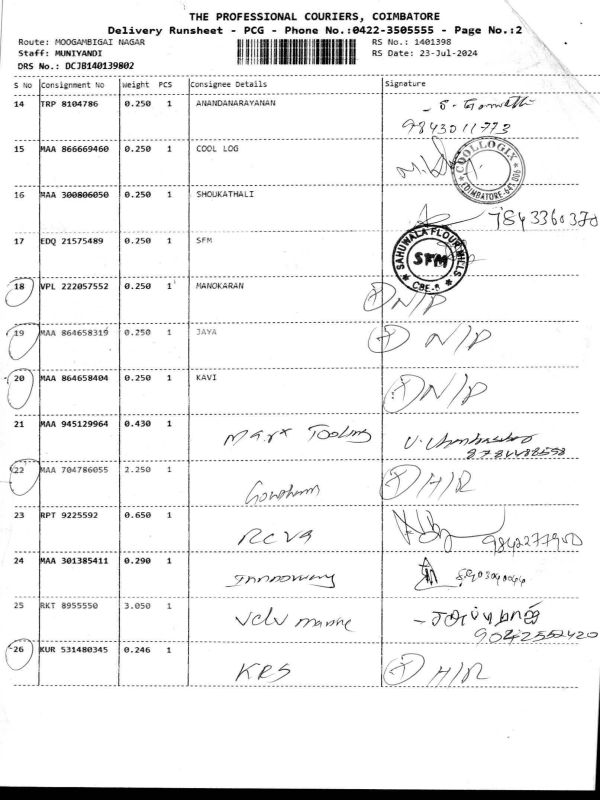 THE PROFESSIONAL COURIERS, COIMBATORE
Delivery Runsheet - PCG - Phone No.:0422-3505555 - Page No.:2
Route: MOOGAMBIGAI NAGAR RS No.: 1401398
Staff: MUNIYANDI RS Date: 23-Jul-2024
DRS No.: DCJB140139802
S No Consignment No Weight PCS Consignee Details Signature
14 TRP 8104786 0.250 1 ANANDANARAYANAN
9843011773
15 MAA 866669460 0.250 1 COOL LOG
COOLLOGIX
COIMBATORE-641 006
16 MAA 300806050 0.250 1 SHOUKATHALI
7843360370
17 EDQ 21575489 0.250 1 SFM
SAHUWALA FLOUR MILLS
SFM
CBE-8
18 VPL 222057552 0.250 1 MANOKARAN N/P
19 MAA 864658319 0.250 1 JAYA N/P
20 MAA 864658404 0.250 1 KAVI N/P
21 MAA 945129964 0.430 1 Marx Tooling
22 MAA 704786055 2.250 1 Gowtham H/R
23 RPT 9225592 0.650 1
24 MAA 301385411 0.290 1
25 RKT 8955550 3.050 1
9042552420
26 KUR 531480345 0.246 1 KRS H/R